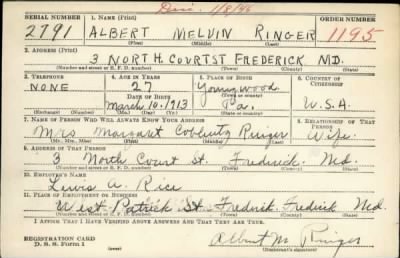 Disc. 1/8/46
SERIAL NUMBER 1. NAME (Print) ORDER NUMBER
2791 ALBERT MELVIN RINGER 1195
(First) (Middle) (Last)
2. ADDRESS (Print)
3 NORTH. COURT ST FREDERICK MD.
(Number and street or R. F. D. number) (Town) (County) (State)
3. TELEPHONE 4. AGE IN YEARS 5. PLACE OF BIRTH 6. COUNTRY OF CITIZENSHIP
NONE 27 Youngwood
DATE OF BIRTH (Town or county)
March 10, 1913 Pa. U.S.A.
(Exchange) (Number) (Mo.) (Day) (Yr.) (State or country)
7. NAME OF PERSON WHO WILL ALWAYS KNOW YOUR ADDRESS 8. RELATIONSHIP OF THAT PERSON
Mrs Margaret Coblentz Ringer Wife.
(Mr., Mrs., Miss) (First) (Middle) (Last)
9. ADDRESS OF THAT PERSON
3 North Court St. Frederick. Md.
(Number and street or R. F. D. number) (Town) (County) (State)
10. EMPLOYER'S NAME
Lewis A. Rice
11. PLACE OF EMPLOYMENT OR BUSINESS
West Patrick St. Fredrick. Fredrick Md.
(Number and street or R. F. D. number) (Town) (County) (State)
I AFFIRM THAT I HAVE VERIFIED ABOVE ANSWERS AND THAT THEY ARE TRUE.
REGISTRATION CARD
D. S. S. Form 1
Albert M. Ringer
(Registrant's signature)